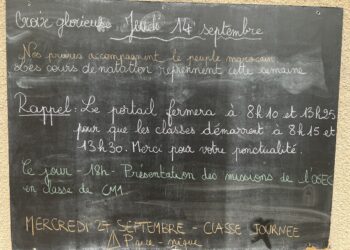 Croix glorieuse Jeudi 14 septembre
Nos prières accompagnent le peuple marocain
Les cours de natation reprennent cette semaine
Rappel : Le portail fermera à 8h10 et 13h25
pour que les classes démarrent à 8h15 et
13h30. Merci pour votre ponctualité.
Ce jour - 18h - Présentation des missions de l'OGEC
en classe de CM1
MERCREDI 27 SEPTEMBRE - CLASSE JOURNEE
⚠ Pique-nique